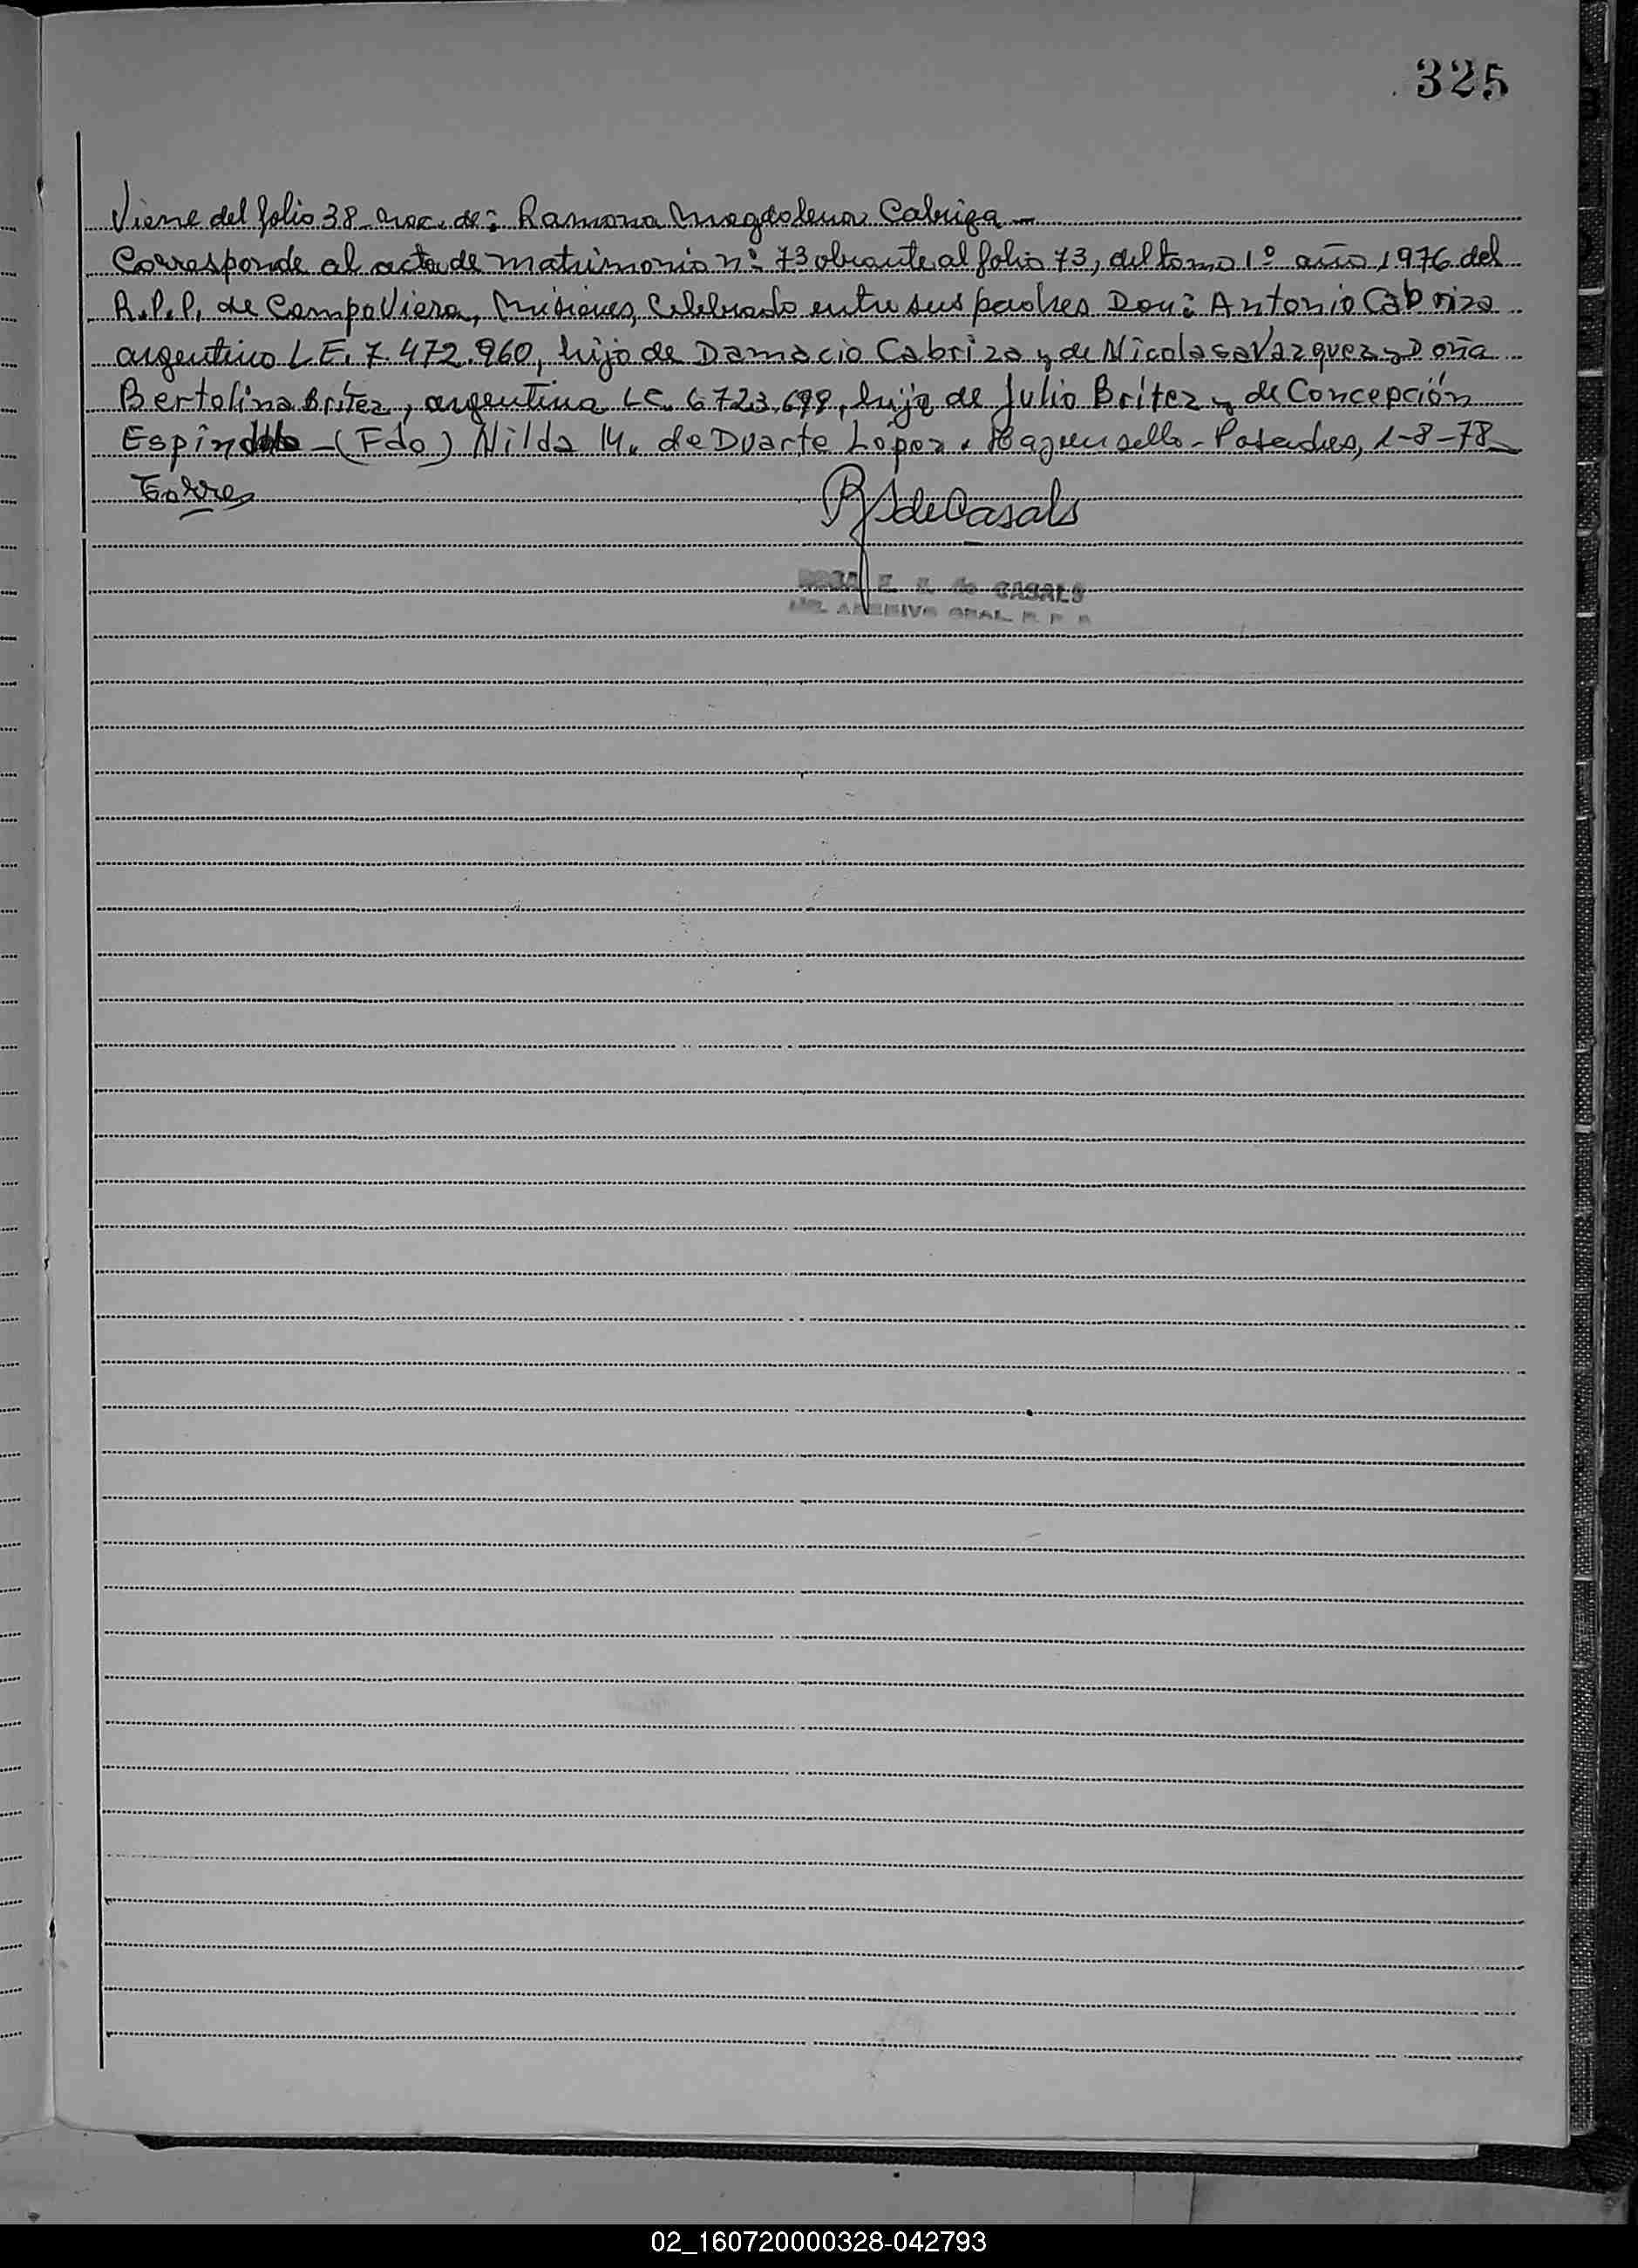 325
Viene del folio 38 nac. de: Ramona Magdalena Cabriza
Corresponde al acta de matrimonio nº 73 obrante al folio 73, del tomo 1º año 1976 del
R.P.P. de Campo Viera, Misiones, Celebrado entre sus padres Don: Antonio Cabriza
argentino L.E. 7.472.960, hijo de Damacio Cabriza y de Nicolasa Vazquez y Doña
Bertolina Britez, argentina L.C. 6.723.699, hija de Julio Britez y de Concepción
Espindola - (Fdo) Nilda M. de Duarte López. Hay un sello - Posadas, 1-8-78
Torres
de Casals
E. S. de CASALS
ARCHIVO GRAL. R. P. P.
02_160720000328-042793